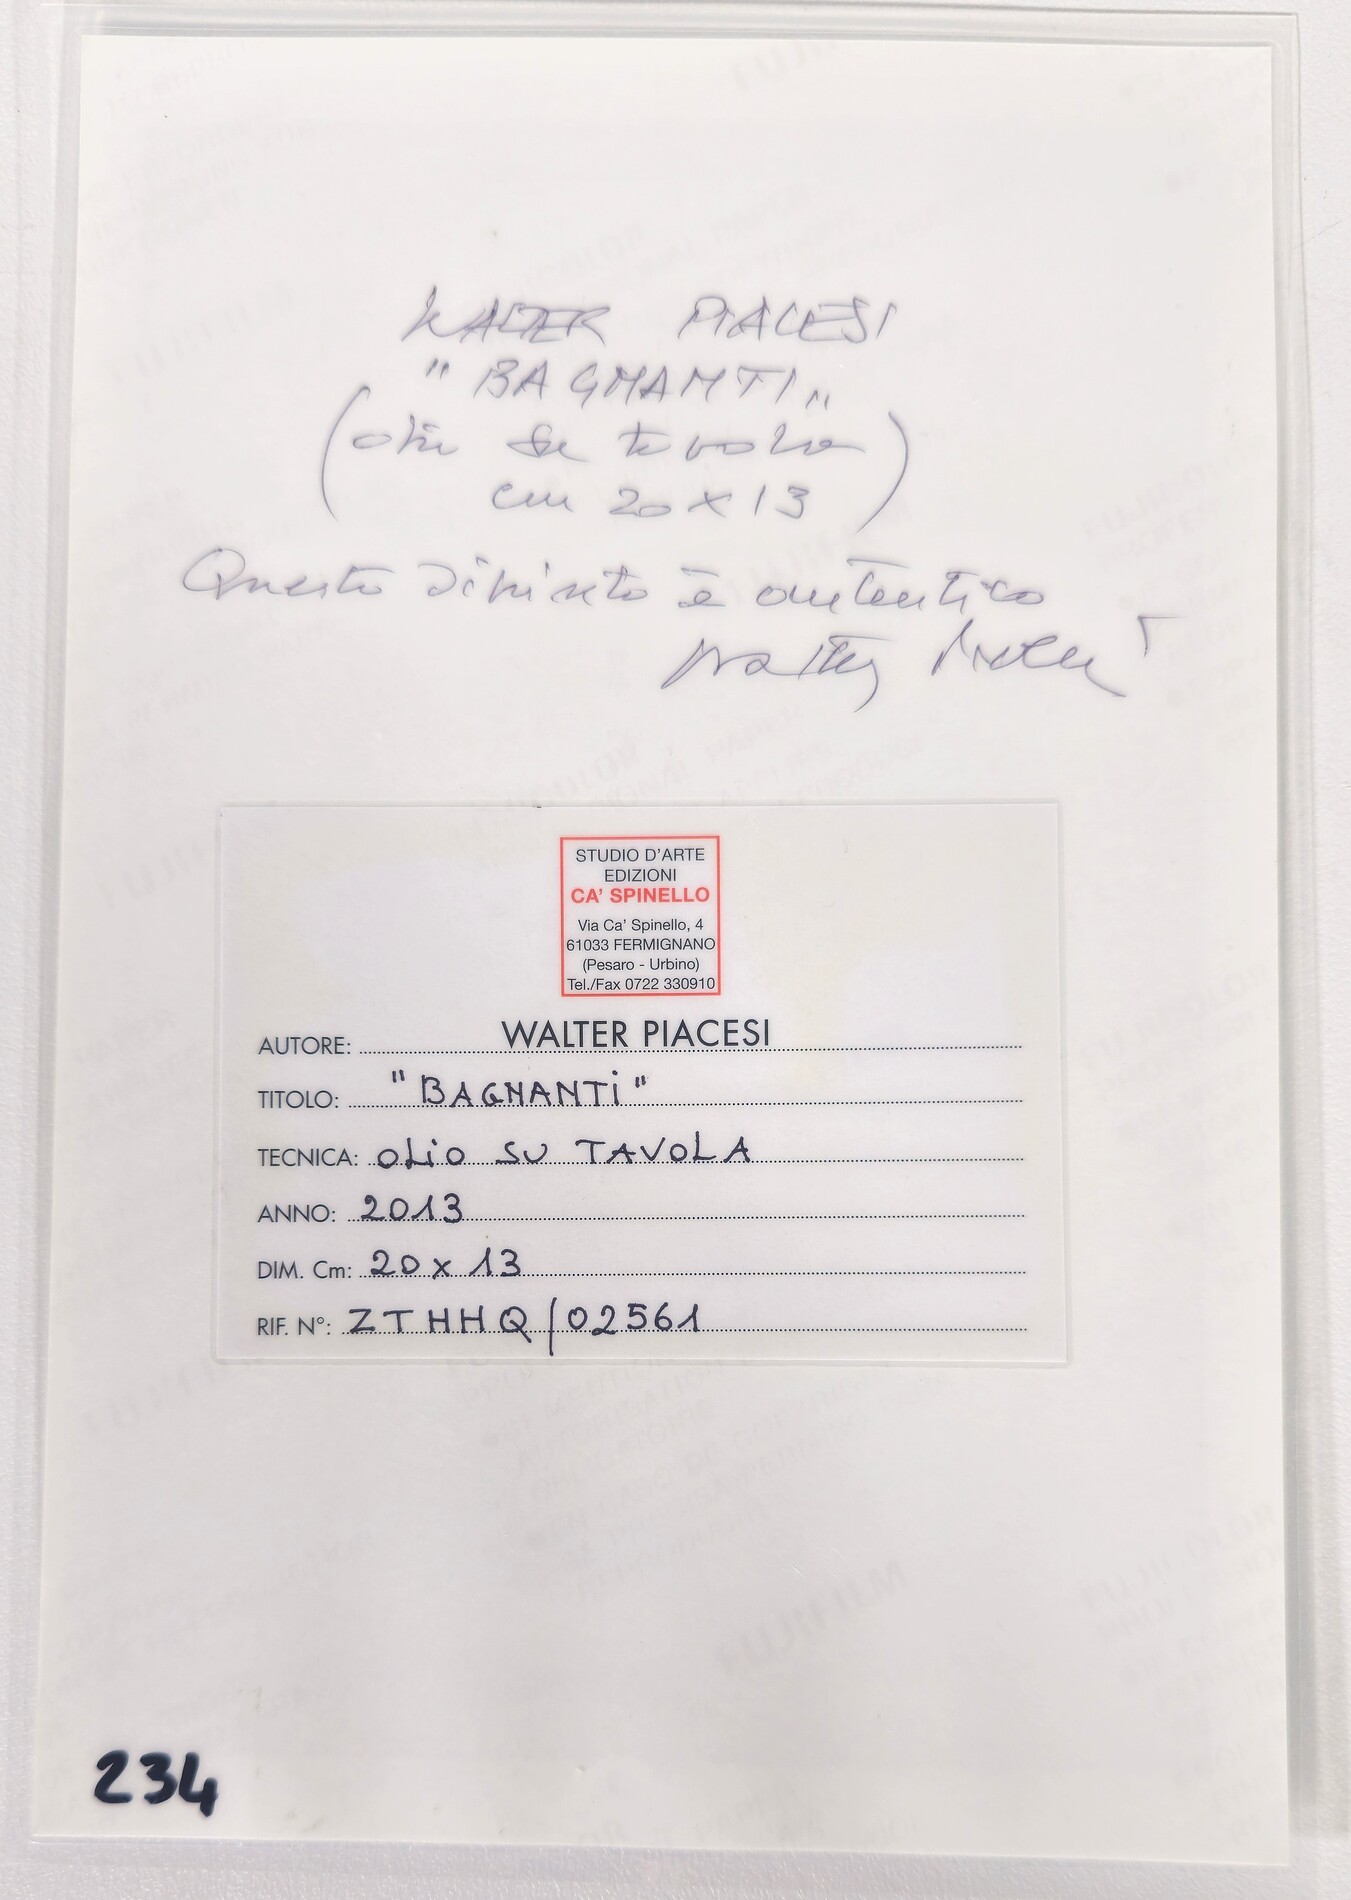 WALTER PIACESI
"BAGNANTI"
(olio su tavola
cm 20 x 13)
Questo dipinto è autentico
Walter Piacesi
STUDIO D'ARTE
EDIZIONI
CA' SPINELLO
Via Ca' Spinello, 4
61033 FERMIGNANO
(Pesaro - Urbino)
Tel./Fax 0722 330910
AUTORE: WALTER PIACESI
TITOLO: "BAGNANTI"
TECNICA: OLIO SU TAVOLA
ANNO: 2013
DIM. Cm: 20 x 13
RIF. N°: ZTHHQ/02561
234